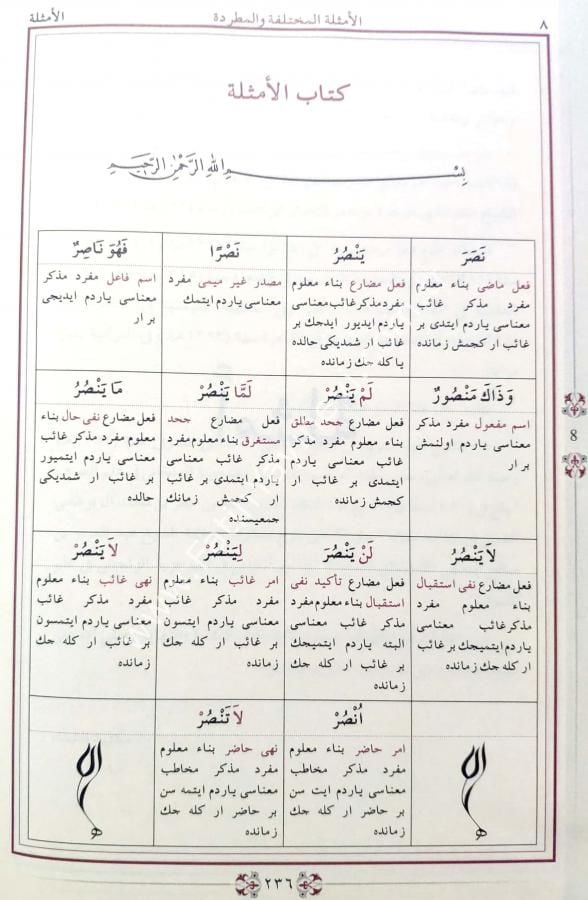 ٨
الأمثلة المختلفة والمطردة
الأمثلة
كتاب الأمثلة
بِسْمِ اللهِ الرَّحْمٰنِ الرَّحِيمِ
نَصَرَ
فعل ماضى بناء معلوم
مفرد مذكر غائب
معناسى ياردم ايتدى بر
غائب ار كجمش زمانده
يَنْصُرُ
فعل مضارع بناء معلوم
مفرد مذكر غائب معناسى
ياردم ايديور ايدجك بر
غائب ار شمديكى حالده
يا كله جك زمانده
نَصْرًا
مصدر غير ميمى مفرد
معناسى ياردم ايتمك
فَهُوَ نَاصِرٌ
اسم فاعل مفرد مذكر
معناسى ياردم ايديجى
بر ار
وَ ذَاكَ مَنْصُورٌ
اسم مفعول مفرد مذكر
معناسى ياردم اولنمش
بر ار
لَمْ يَنْصُرْ
فعل مضارع جحد مطلق
بناء معلوم مفرد مذكر
غائب معناسى ياردم
ايتمدى بر غائب ار
كجمش زمانده
لَمَّا يَنْصُرْ
فعل مضارع جحد
مستغرق بناء معلوم مفرد
مذكر غائب معناسى
ياردم ايتمدى بر غائب
ار كجمش زمانك
جمعيسنده
مَا يَنْصُرُ
فعل مضارع نفى حال بناء
معلوم مفرد مذكر غائب
معناسى ياردم ايتميور
بر غائب ار شمديكى
حالده
لَا يَنْصُرُ
فعل مضارع نفى استقبال
بناء معلوم مفرد
مذكر غائب معناسى
ياردم ايتميجك بر غائب
ار كله جك زمانده
لَنْ يَنْصُرَ
فعل مضارع تأكيد نفى
استقبال بناء معلوم مفرد
مذكر غائب معناسى
البته ياردم ايتميجك
بر غائب ار كله جك
زمانده
لِيَنْصُرْ
امر غائب بناء معلوم
مفرد مذكر غائب
معناسى ياردم ايتسون
بر غائب ار كله جك
زمانده
لَا يَنْصُرْ
نهى غائب بناء معلوم
مفرد مذكر غائب
معناسى ياردم ايتمسون
بر غائب ار كله جك
زمانده
اُنْصُرْ
امر حاضر بناء معلوم
مفرد مذكر مخاطب
معناسى ياردم ايت سن
بر حاضر ار كله جك
زمانده
لَا تَنْصُرْ
نهى حاضر بناء معلوم
مفرد مذكر مخاطب
معناسى ياردم ايتمه سن
بر حاضر ار كله جك
زمانده
8
٢٣٦